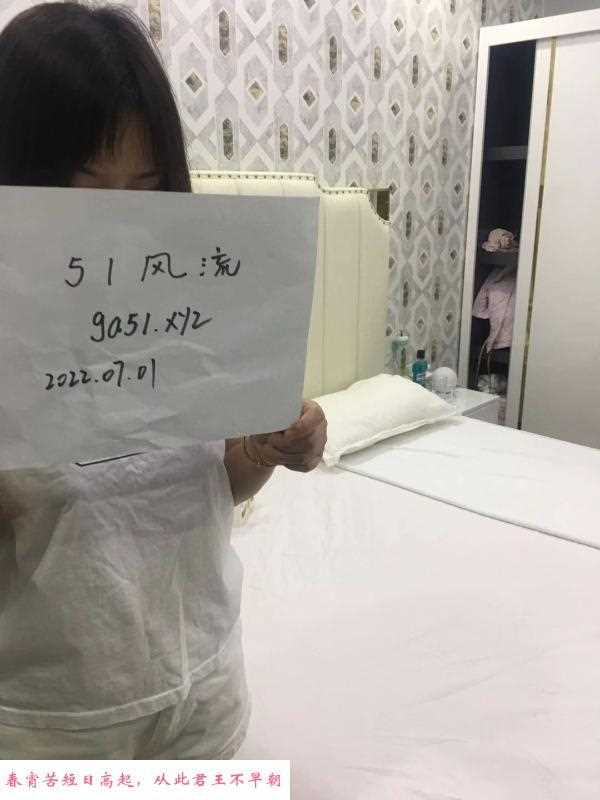 51风流
ga51.xyz
2022.07.01
春宵苦短日高起，从此君王不早朝